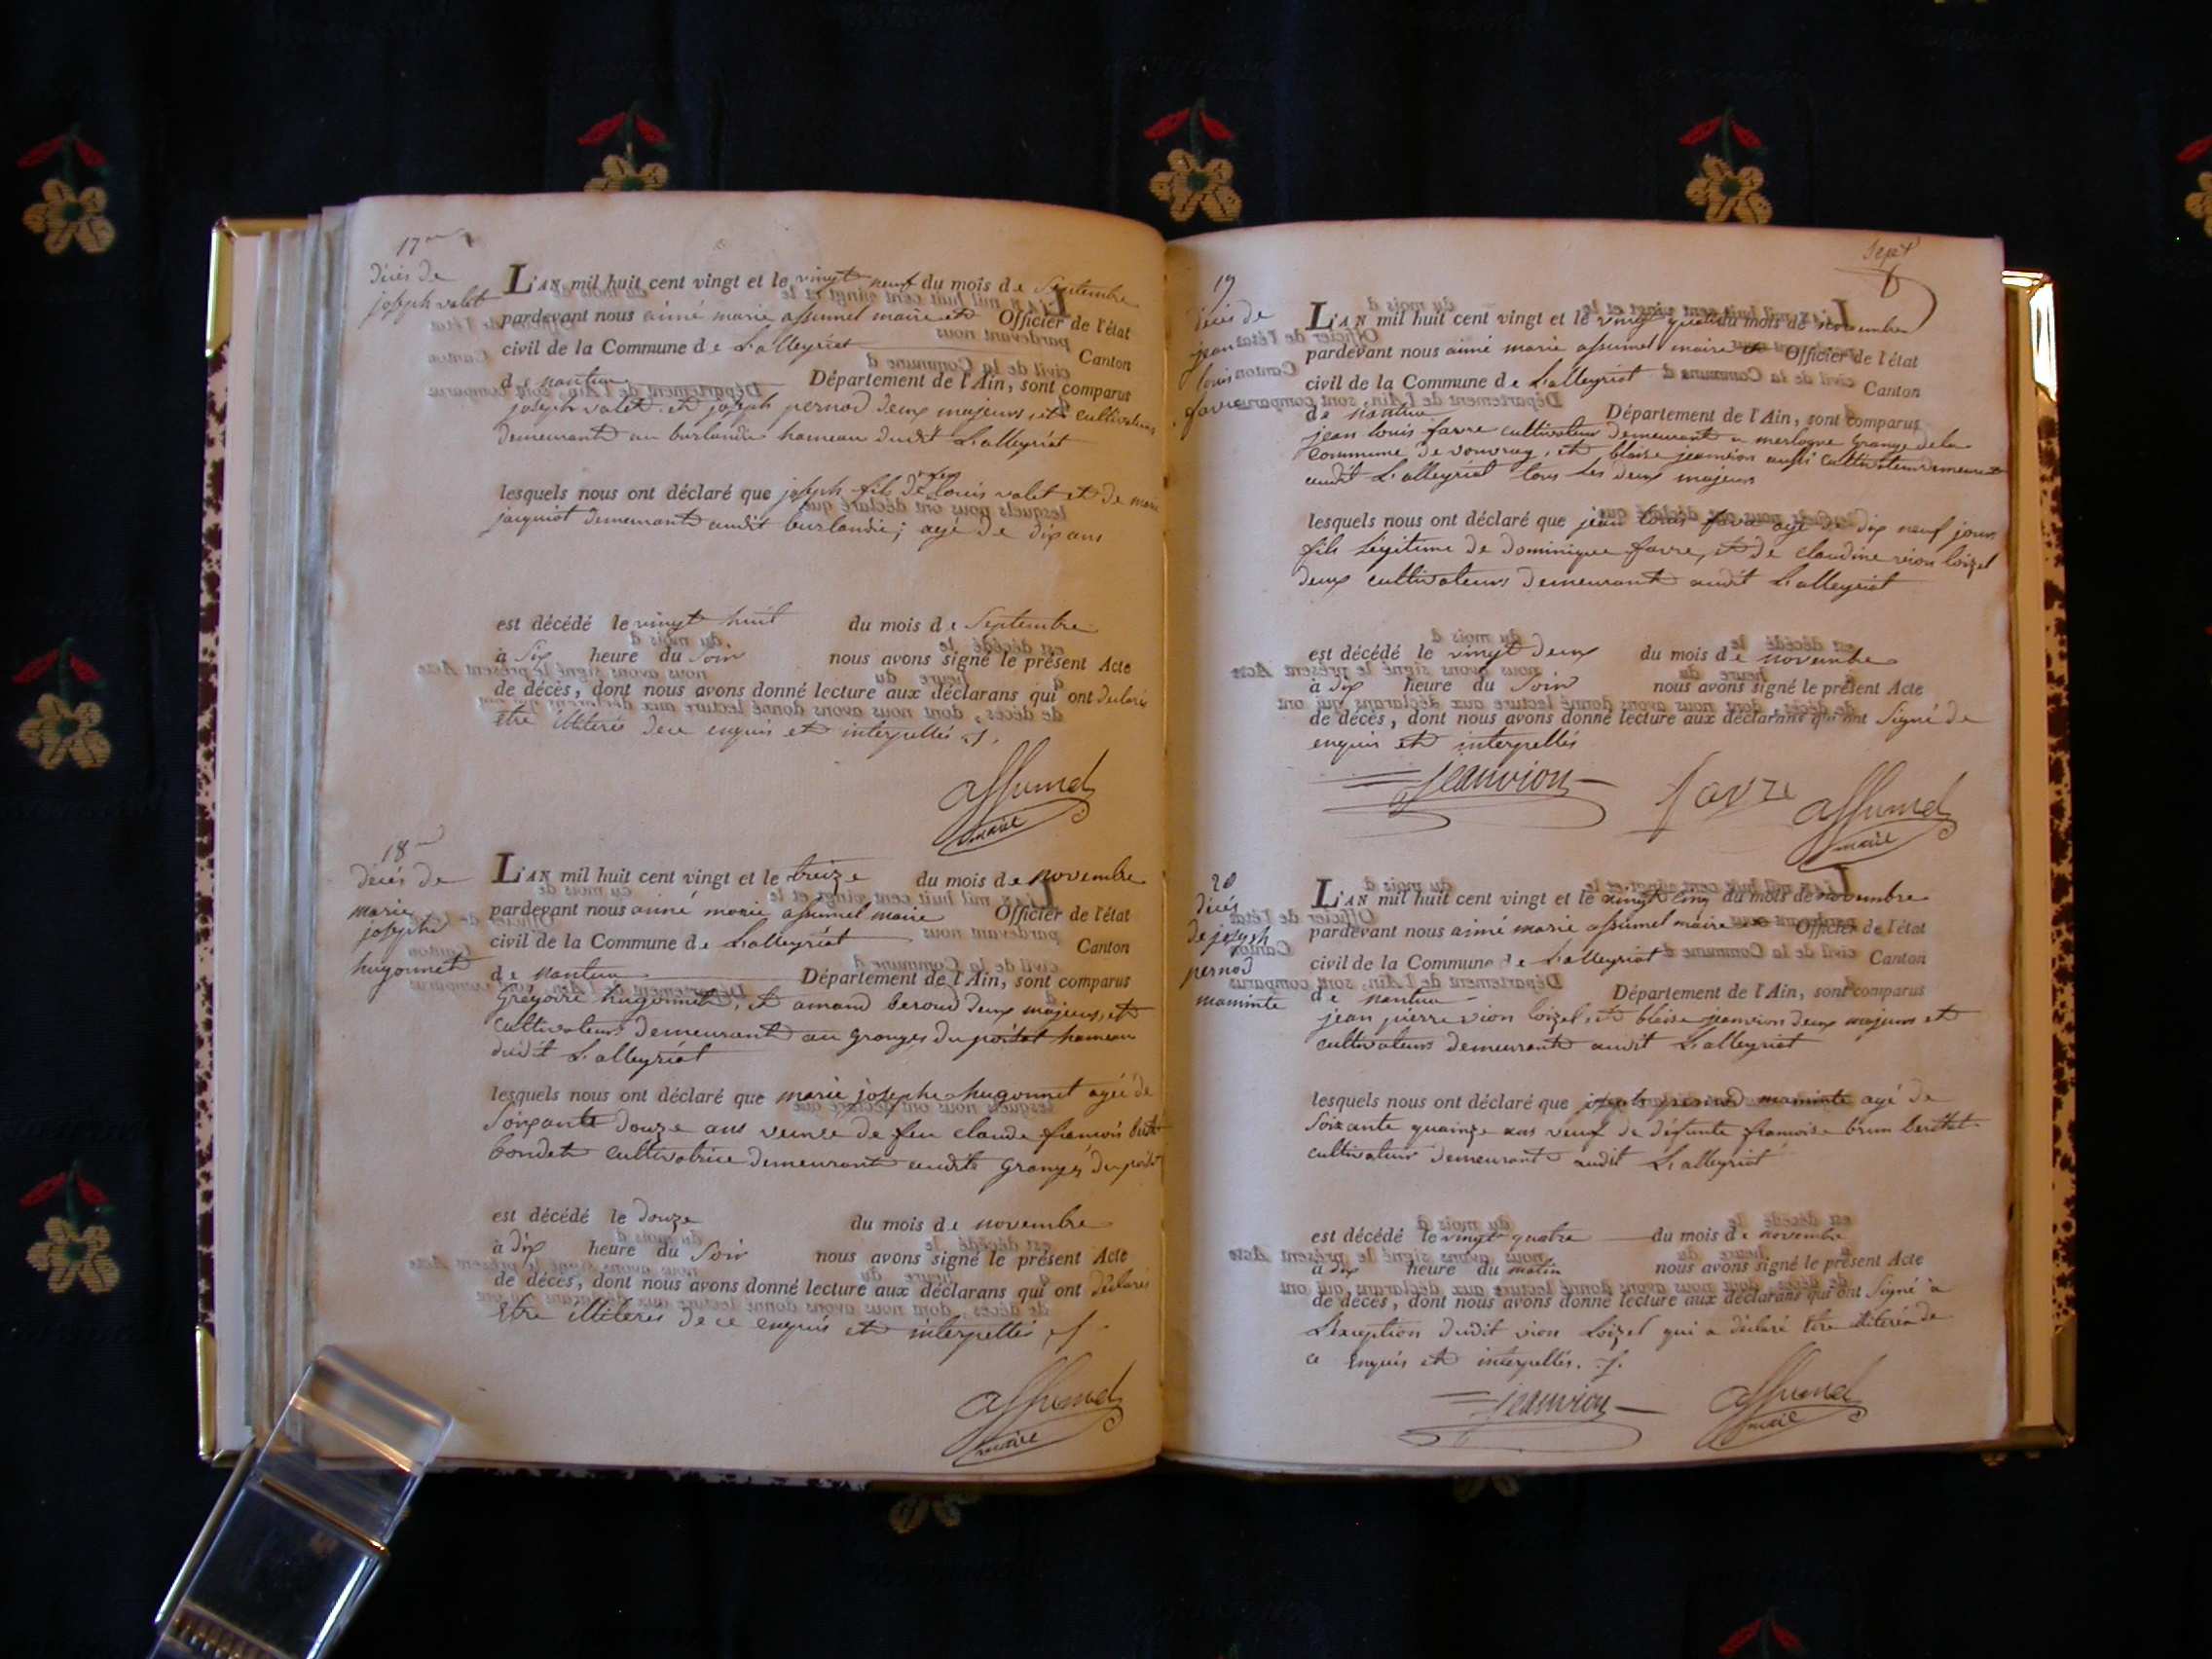 17
décès de
joseph valet
L'AN mil huit cent vingt et le vingt neuf du mois de Septembre
pardevant nous aimé marie assumel maire et Officier de l'état
civil de la Commune de Lalleyriat Canton
de nantua Département de l'Ain, sont comparus
joseph valet et joseph pernod deux majeurs, et cultivateurs
demeurant au burlandier hameau dudit Lalleyriat
lesquels nous ont déclaré que joseph fils de Louis valet et de marie
jacquiot demeurant audit burlandier; agé de dix ans
est décédé le vingt huit du mois de Septembre
à Six heure du Soir nous avons signé le présent Acte
de décès, dont nous avons donné lecture aux déclarans qui ont déclaré
etre illiterés de ce enquis et interpellés
assumel
maire
18
décés de
marie
josephe
hugonnet
L'AN mil huit cent vingt et le treize du mois de novembre
pardevant nous aimé marie assumel maire Officier de l'état
civil de la Commune de Lalleyriat Canton
de nantua Département de l'Ain, sont comparus
Grégoire hugonnet, et amand beroud deux majeurs, et
cultivateurs demeurant au granges du poizat hameau
dudit Lalleyriat
lesquels nous ont déclaré que marie josephe hugonnet agée de
Soixante douze ans veuve de feu claude françois
bondet cultivatrice demeurant audite Granges du poizat
est décédé le douze du mois de novembre
à dix heure du Soir nous avons signé le présent Acte
de décès, dont nous avons donné lecture aux déclarans qui ont déclarés
etre illiterés de ce enquis et interpellés
assumel
maire
Sept
19
décés de
jean
louis
favre
L'AN mil huit cent vingt et le vingt quatre du mois de novembre
pardevant nous aimé marie assumel maire et Officier de l'état
civil de la Commune de Lalleyriat Canton
de nantua Département de l'Ain, sont comparus
jean louis favre cultivateur demeurant a merlogne Grange de la
commune de vouvray, et blaise jeanvion aussi cultivateur demeurant
audit Lalleyriat tous les deux majeurs
lesquels nous ont déclaré que jean louis favre agé de dix neuf jours
fils légitime de dominique favre, et de claudine vion loizel
deux cultivateurs demeurant audit Lalleyriat
est décédé le vingt deux du mois de novembre
à dix heure du Soir nous avons signé le présent Acte
de décès, dont nous avons donné lecture aux déclarans qui ont Signé de
enquis et interpellés
jeanvion favre assumel
maire
20
décés
de joseph
pernod
maminte
L'AN mil huit cent vingt et le vingt cinq du mois de novembre
pardevant nous aimé marie assumel maire et Officier de l'état
civil de la Commune de Lalleyriat Canton
de nantua Département de l'Ain, sont comparus
jean pierre vion loizel, et blaise jeanvion deux majeurs et
cultivateurs demeurant audit Lalleyriat
lesquels nous ont déclaré que joseph pernod maminte agé de
Soixante quainze ans veuf de défunte francoise brun berthet
cultivateur demeurant audit Lalleyriat
est décédé le vingt quatre du mois de novembre
à dix heure du matin nous avons signé le présent Acte
de décès, dont nous avons donné lecture aux déclarans qui ont Signé à
L'exception dudit vion loizel qui a déclaré etre illiteré de
ce Enquis et interpellés.
jeanvion assumel
maire